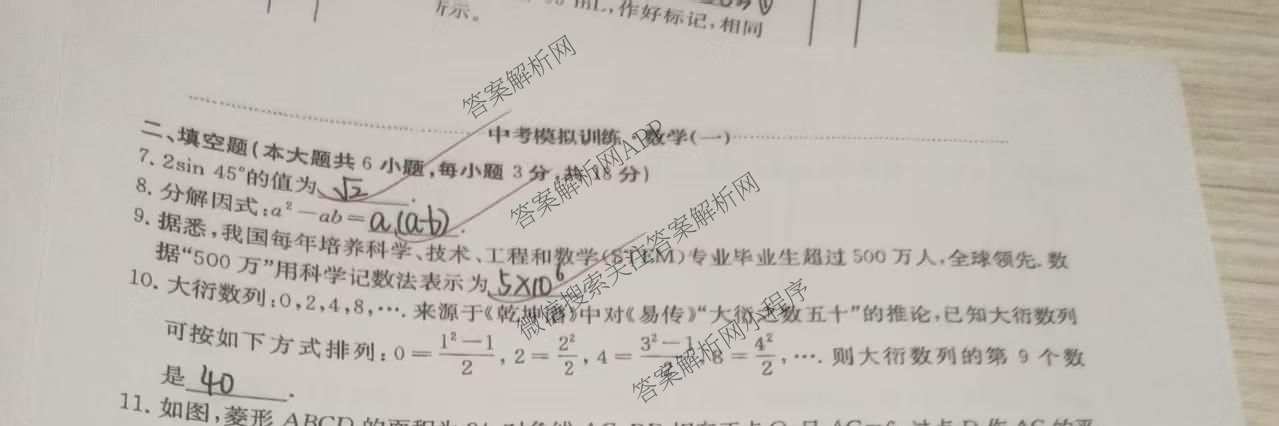 mL,作好标记,相同
所示。
中考模拟训练·数学(一)
二、填空题(本大题共6小题,每小题3分,共18分)
7. 2sin 45°的值为 √2 .
8. 分解因式:a²-ab=a(a-b).
9. 据悉,我国每年培养科学、技术、工程和数学(STEM)专业毕业生超过500万人,全球领先.数
据“500万”用科学记数法表示为 5×10⁶
10. 大衍数列:0,2,4,8,….来源于《乾坤谱》中对《易传》“大衍之数五十”的推论,已知大衍数列
可按如下方式排列:0=(1²-1)/2,2=2²/2,4=(3²-1)/2,8=4²/2,….则大衍数列的第9个数
是 40 .
11. 如图,菱形ABCD的面积为
答案解析网
答案解析网APP
微信搜索关注答案解析网
答案解析网小程序